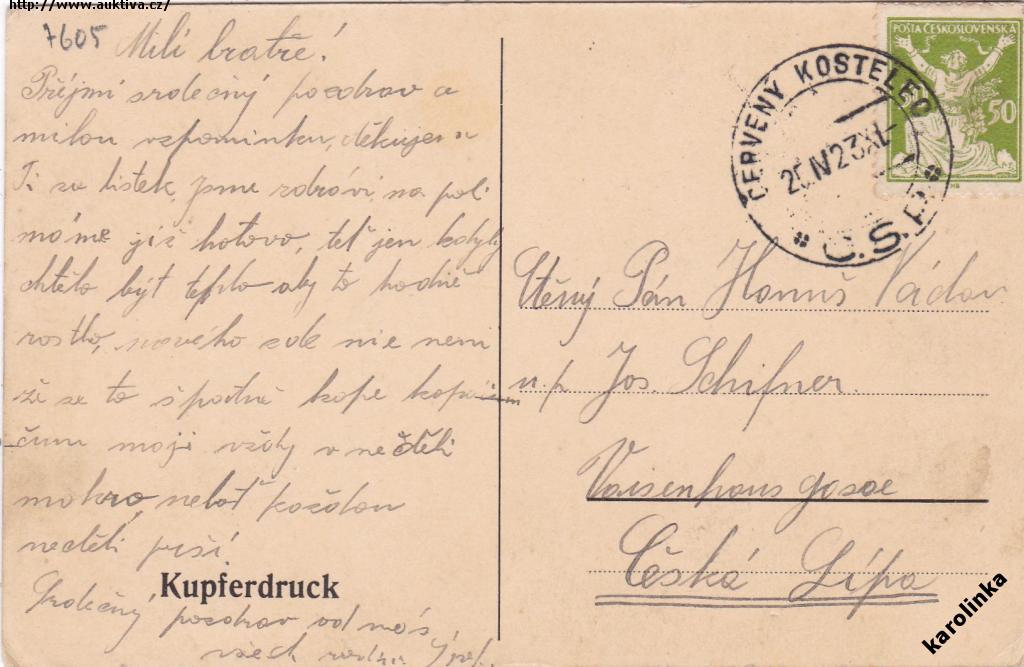 http://www.auktiva.cz/
7605
Milí bratře!
Přéjmi srdečný pozdrav a
milou vzpomínku, děkujem
Ti za lístek, jsme zdrávi, na poli
máme již hotovo, teť jen kdyby
chtělo být teplo aby to hodně
rostlo, nového zde nic není
že se to špatně kope
moji vždy v neděli
mokro, neboť každou
neděli prší.
Srdečný pozdrav od nás
všech
Kupferdruck
POŠTA ČESKOSLOVENSKÁ
50
ČERVENÝ KOSTELEC
25.IV.23.XI-
Č.S.P.
Ctěný Pán Hanuš Václav
u. p. Jos. Schifner.
Vaisenhaus gasse
Česká Lípa
karolinka